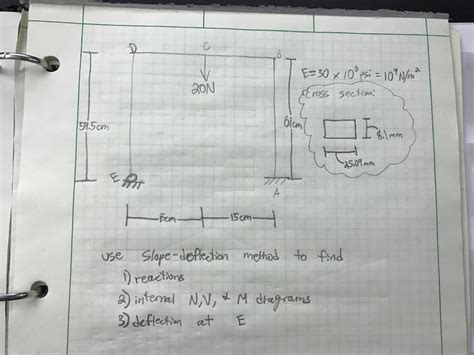 D C B
E=30 × 10⁶ psi = 10⁹ N/m²
Cross section:
20N
59.5cm
61cm
8.1mm
25.09mm
E
A
15cm
use slope-deflection method to find
1) reactions
2) internal N,V, & M diagrams
3) deflection at E